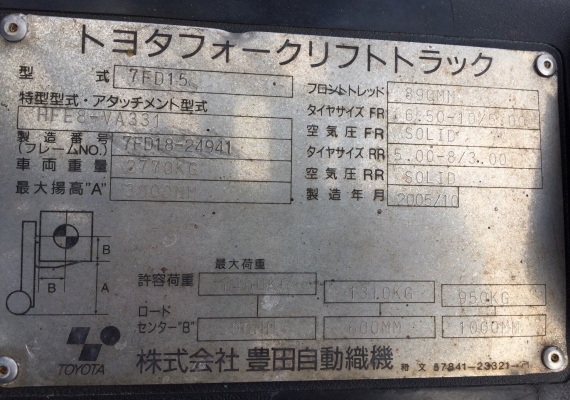 トヨタフォークリフトトラック
型式 7FD15
特型型式・アタッチメント型式
HFE8-VA331
製造番号
(フレームNO.) 7FD18-24941
車両重量 2770KG
最大揚高"A"
フロントトレッド 890MM
タイヤサイズ FR 6.50-10/5.00
空気圧 FR SOLID
タイヤサイズ RR 5.00-8/3.00
空気圧 RR SOLID
製造年月 2005/10
B
B
A
最大荷重
許容荷重 1310KG 950KG
ロード
センター"B" 600MM 1000MM
TOYOTA
株式会社 豊田自動織機